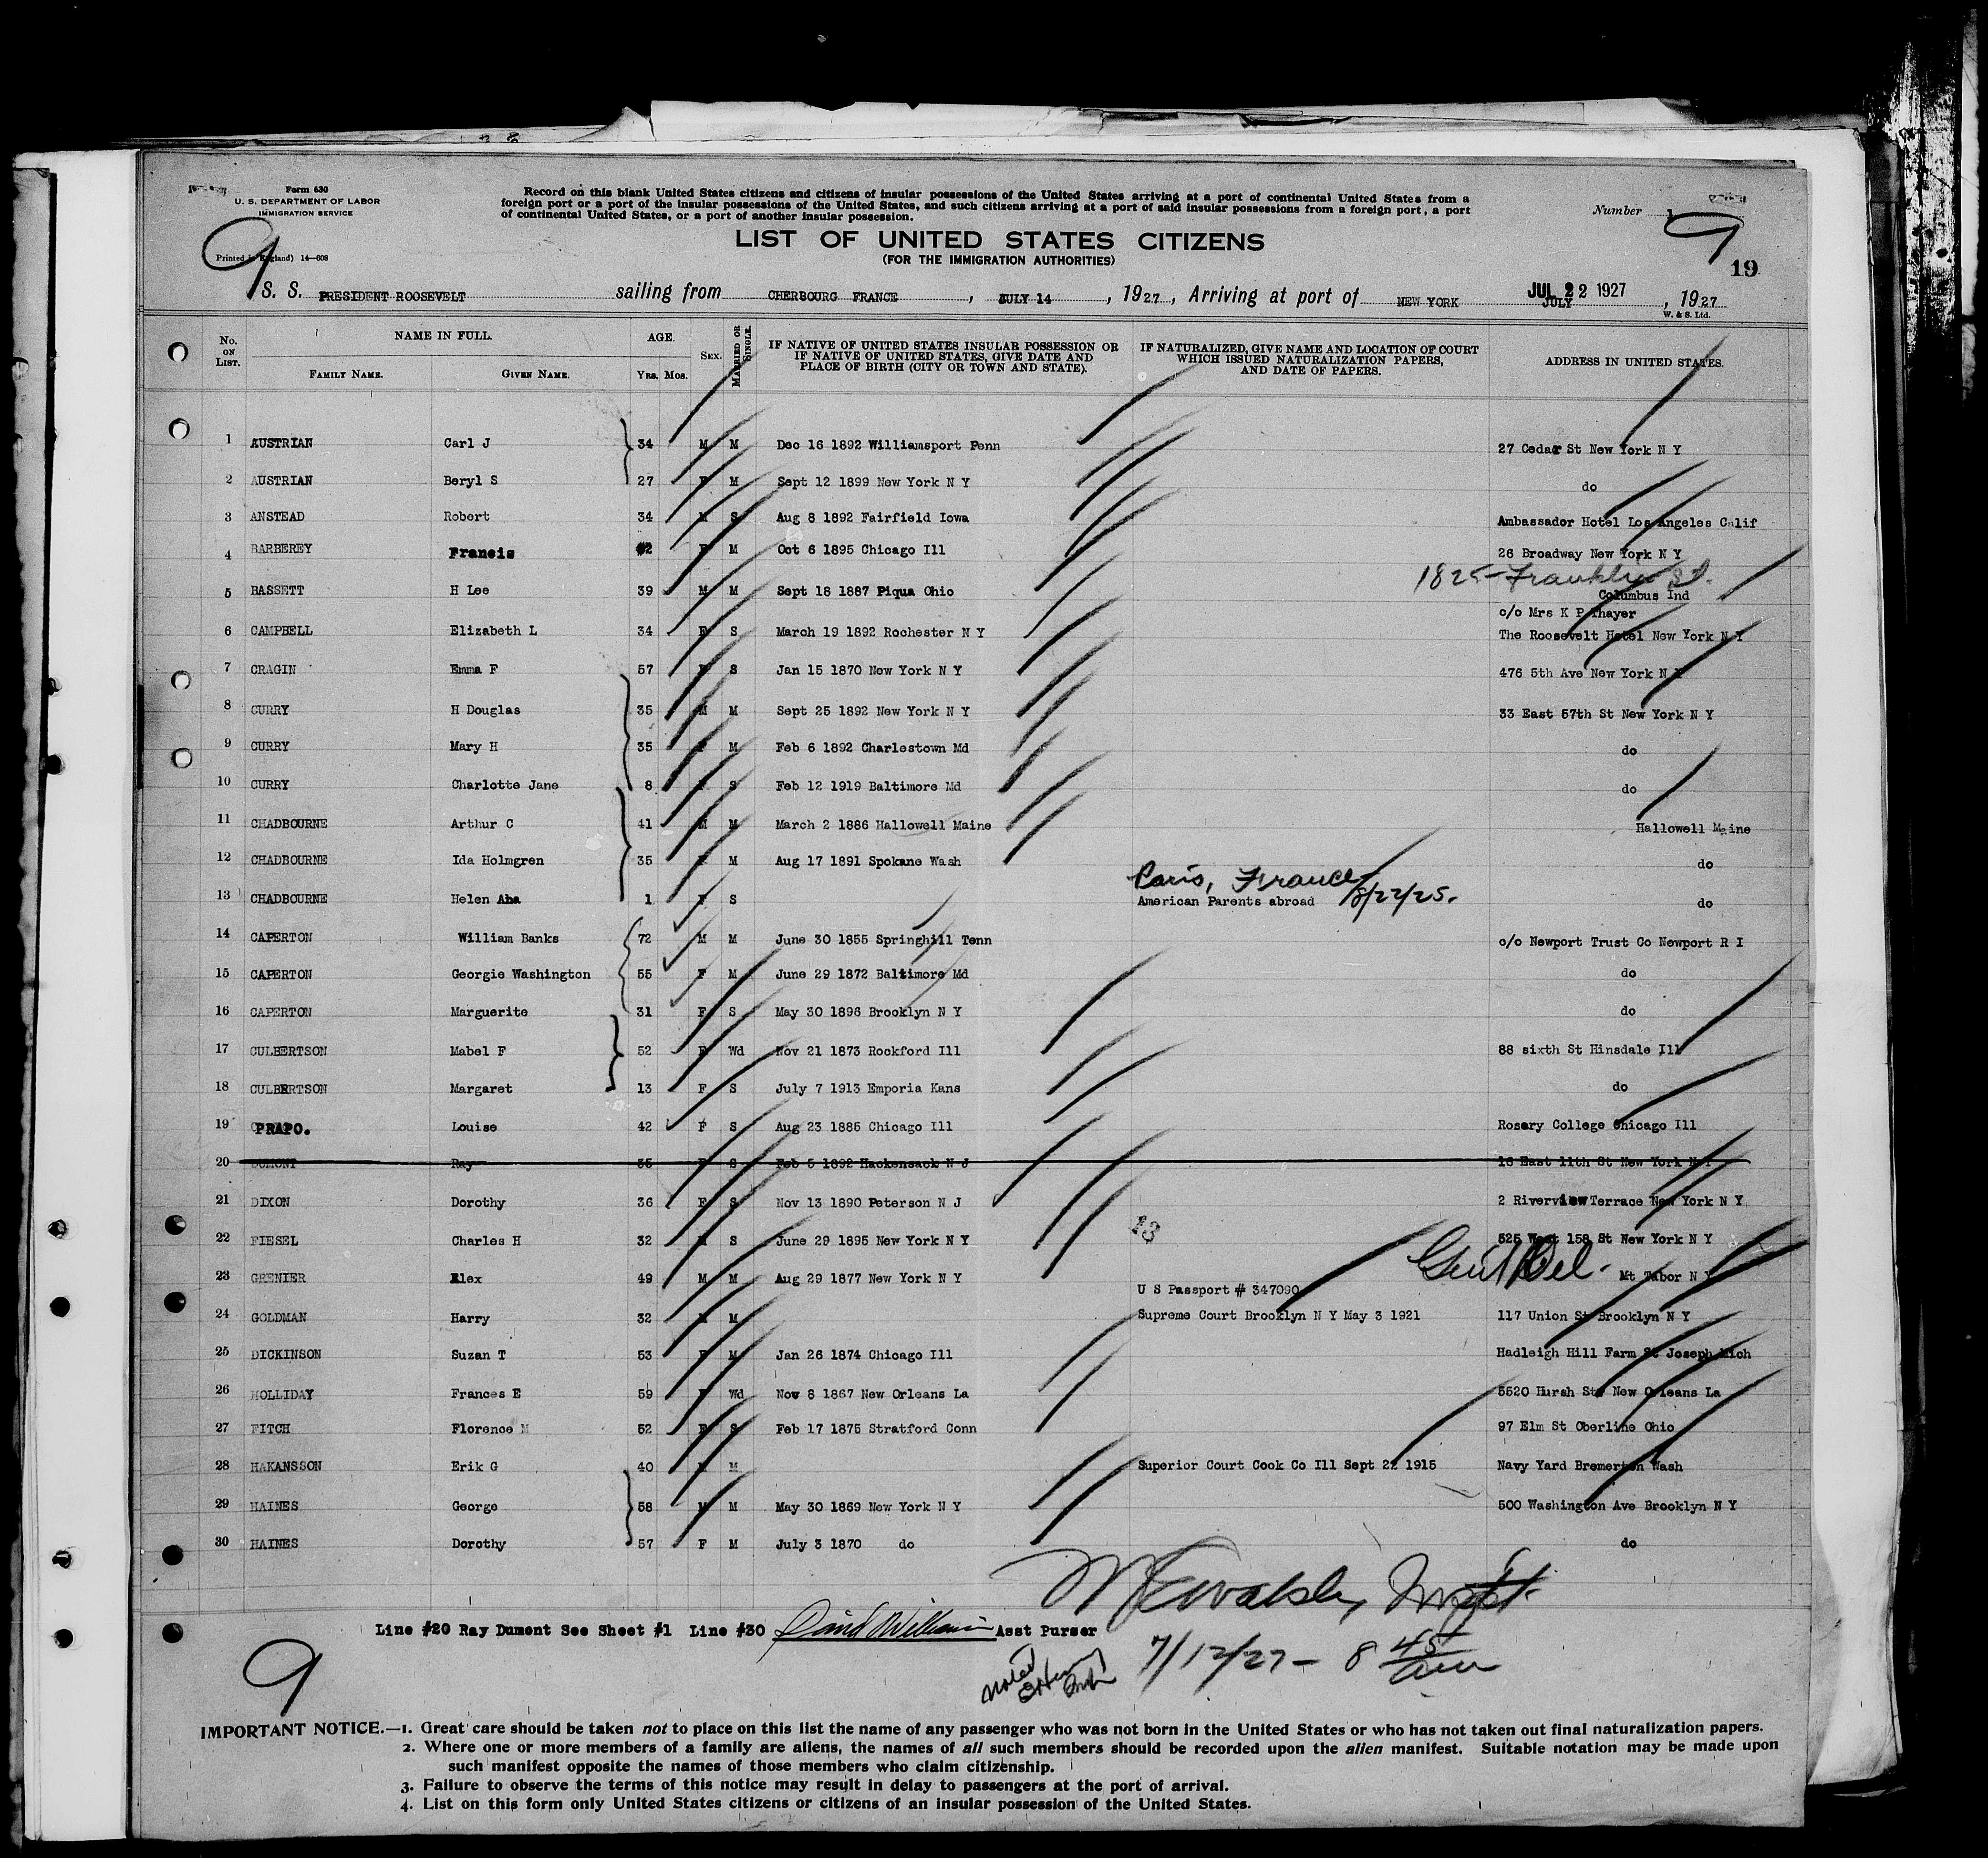 Form 630
U. S. DEPARTMENT OF LABOR
IMMIGRATION SERVICE
Record on this blank United States citizens and citizens of insular possessions of the United States arriving at a port of continental United States from a
foreign port or a port of the insular possessions of the United States, and such citizens arriving at a port of said insular possessions from a foreign port, a port
of continental United States, or a port of another insular possession.
Number
9
9
Printed in England) 14—608
LIST OF UNITED STATES CITIZENS
(FOR THE IMMIGRATION AUTHORITIES)
19
S. S. PRESIDENT ROOSEVELT sailing from CHERBOURG FRANCE, JULY 14, 1927, Arriving at port of NEW YORK JUL 22 1927 JULY, 1927
W. & S. Ltd.
No. ON LIST. NAME IN FULL. FAMILY NAME. GIVEN NAME. AGE. YRS. MOS. SEX. MARRIED OR SINGLE. IF NATIVE OF UNITED STATES INSULAR POSSESSION OR IF NATIVE OF UNITED STATES, GIVE DATE AND PLACE OF BIRTH (CITY OR TOWN AND STATE). IF NATURALIZED, GIVE NAME AND LOCATION OF COURT WHICH ISSUED NATURALIZATION PAPERS, AND DATE OF PAPERS. ADDRESS IN UNITED STATES.
1 AUSTRIAN Carl J 34 M M Dec 16 1892 Williamsport Penn 27 Cedar St New York N Y
2 AUSTRIAN Beryl S 27 F M Sept 12 1899 New York N Y do
3 ANSTEAD Robert 34 M S Aug 8 1892 Fairfield Iowa Ambassador Hotel Los Angeles Calif
4 BARBEREY Francis F M Oct 6 1895 Chicago Ill 26 Broadway New York N Y
1825 Franklin St.
5 BASSETT H Lee 39 M M Sept 18 1887 Piqua Ohio Columbus Ind
c/o Mrs K P Thayer
6 CAMPBELL Elizabeth L 34 F S March 19 1892 Rochester N Y The Roosevelt Hotel New York N Y
7 CRAGIN Emma F 57 F S Jan 15 1870 New York N Y 476 5th Ave New York N Y
8 CURRY H Douglas 35 M M Sept 25 1892 New York N Y 33 East 57th St New York N Y
9 CURRY Mary H 35 F M Feb 6 1892 Charlestown Md do
10 CURRY Charlotte Jane 8 F S Feb 12 1919 Baltimore Md do
11 CHADBOURNE Arthur C 41 M M March 2 1886 Hallowell Maine Hallowell Maine
12 CHADBOURNE Ida Holmgren 35 F M Aug 17 1891 Spokane Wash do
Paris, France 8/22/25.
13 CHADBOURNE Helen Aha 1 F S American Parents abroad do
14 CAPERTON William Banks 72 M M June 30 1855 Springhill Tenn c/o Newport Trust Co Newport R I
15 CAPERTON Georgie Washington 55 F M June 29 1872 Baltimore Md do
16 CAPERTON Marguerite 31 F S May 30 1896 Brooklyn N Y do
17 CULBERTSON Mabel F 52 F Wd Nov 21 1873 Rockford Ill 88 sixth St Hinsdale Ill
18 CULBERTSON Margaret 13 F S July 7 1913 Emporia Kans do
19 PRAPO. Louise 42 F S Aug 23 1885 Chicago Ill Rosary College Chicago Ill
20 DUMONT Ray 35 F S Feb 5 1892 Hackensack N J 16 East 11th St New York N Y
21 DIXON Dorothy 36 F S Nov 13 1890 Peterson N J 2 Riverview Terrace New York N Y
13
22 FIESEL Charles H 32 M S June 29 1895 New York N Y 525 West 158 St New York N Y
Gen'l Del.
23 GRENIER Alex 49 M M Aug 29 1877 New York N Y Mt Tabor N Y
U S Passport # 347090
24 GOLDMAN Harry 32 M M Supreme Court Brooklyn N Y May 3 1921 117 Union St Brooklyn N Y
25 DICKINSON Suzan T 53 F M Jan 26 1874 Chicago Ill Hadleigh Hill Farm St Joseph Mich
26 HOLLIDAY Frances E 59 F Wd Nov 8 1867 New Orleans La 5520 Hursh St New Orleans La
27 FITCH Florence M 52 F S Feb 17 1875 Stratford Conn 97 Elm St Oberline Ohio
28 HAKANSSON Erik G 40 M M Superior Court Cook Co Ill Sept 22 1915 Navy Yard Bremerton Wash
29 HAINES George 58 M M May 30 1869 New York N Y 500 Washington Ave Brooklyn N Y
30 HAINES Dorothy 57 F M July 3 1870 do do
Line #20 Ray Dumont See Sheet #1 Line #30 David Williams Asst Purser
7/12/27 - 8 45 am
Noted
9
IMPORTANT NOTICE.—1. Great care should be taken not to place on this list the name of any passenger who was not born in the United States or who has not taken out final naturalization papers.
2. Where one or more members of a family are aliens, the names of all such members should be recorded upon the alien manifest. Suitable notation may be made upon
such manifest opposite the names of those members who claim citizenship.
3. Failure to observe the terms of this notice may result in delay to passengers at the port of arrival.
4. List on this form only United States citizens or citizens of an insular possession of the United States.